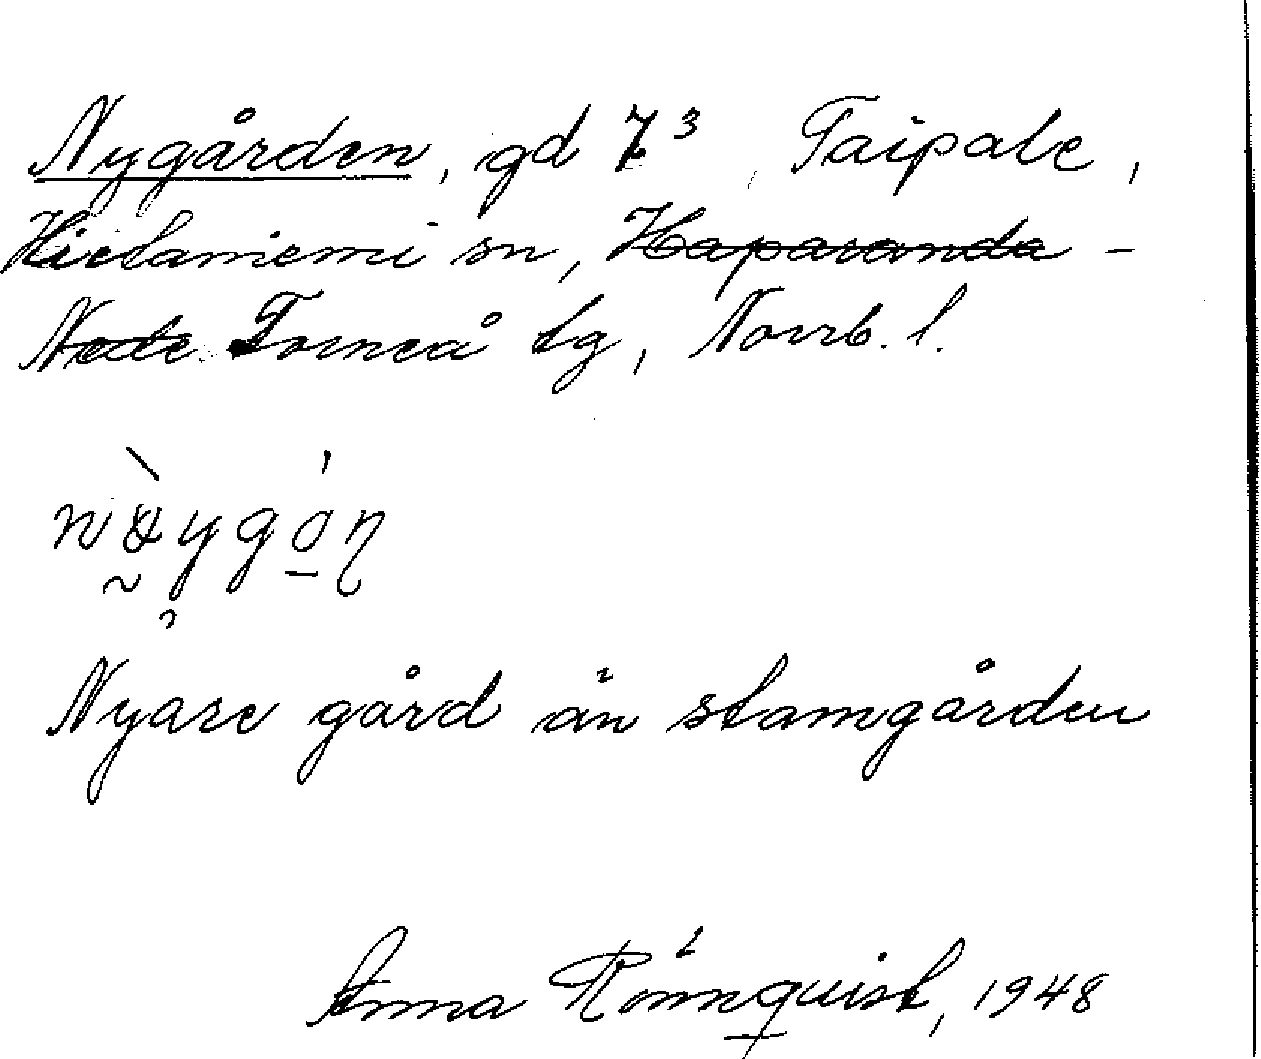 Nygården, gd 7³, Taipale,
Hietaniemi sn, Haparanda -
Nedt. Torneå tg, Norrb. l.
Nyare gård än stamgården
Anna Rönnquist, 1948